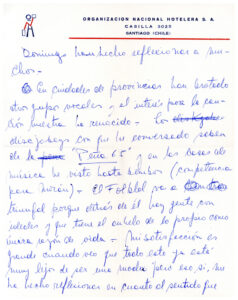 ORGANIZACION NACIONAL HOTELERA S. A.
CASILLA 3025
SANTIAGO (CHILE)
Domingo han hecho reflexionar a mu-
chos.
En ciudades de provincias han brotado
otros grupos vocales - el interés por la can-
ción nuestra ha renacido - Los
disc jockeys con que he conversado saben
de la Peña 65 y en las casas de
música he visto hasta bombos (competencia
para Morán). El Folklol va a
triunfal porque detrás de él hay gente con
ideales y que tiene el anhelo de lo propio como
única razón de vida - Mi satisfacción es
grande cuando veo que todo esto ya está
muy lejos de ser una moda pero eso sí, me
ha hecho reflexionar en cuanto al sentido que